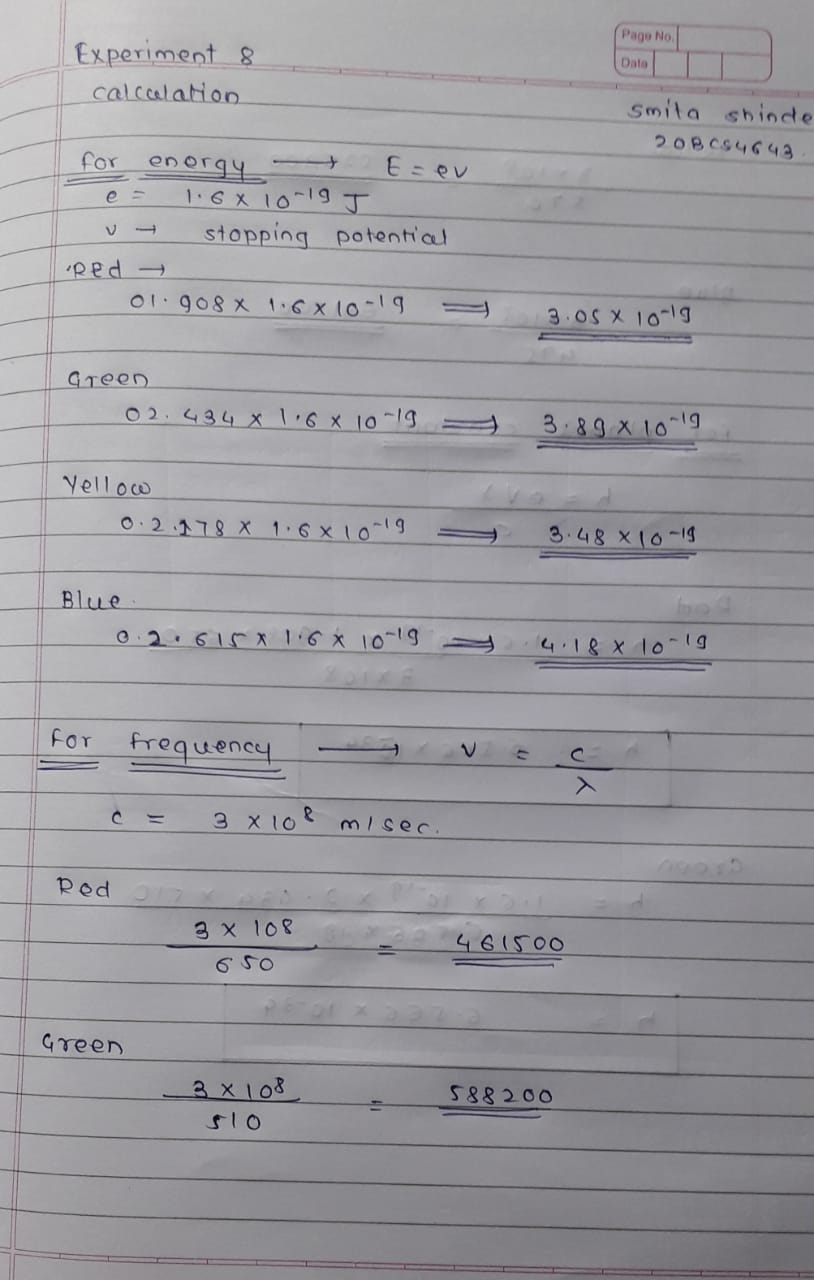 Page No.
Date
Experiment 8
calculation
Smita shinde
20BCS4643.
for energy → E = ev
e = 1.6 x 10-19 J
v → stopping potential
Red →
01.908 x 1.6 x 10-19 ⇒ 3.05 x 10-19
Green
02.434 x 1.6 x 10-19 ⇒ 3.89 x 10-19
Yellow
0.2.178 x 1.6 x 10-19 ⇒ 3.48 x 10-19
Blue.
0.2.615 x 1.6 x 10-19 ⇒ 4.18 x 10-19
For frequency → v = c/λ
c = 3 x 10⁸ m/sec.
Red
3 x 108 / 650 = 461500
Green
3 x 108 / 510 = 588200